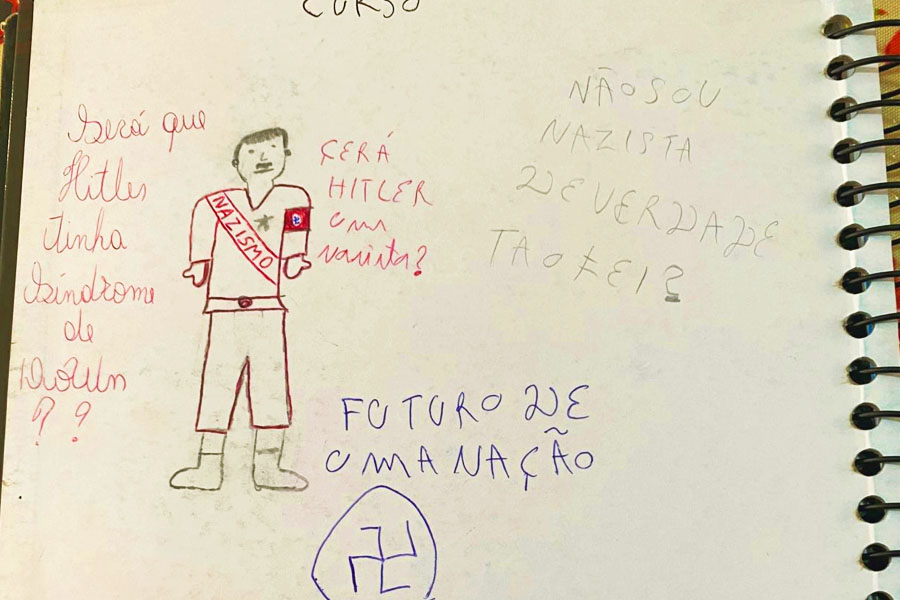 CURSO
Será que
Hitler
tinha
Síndrome
de
Down
? ?
NAZISMO
ÇERÁ
HITLER
um
nazista?
NÃO SOU
NAZISTA
DE VERDADE
TAOKEI?
FUTURO DE
UMA NAÇÃO